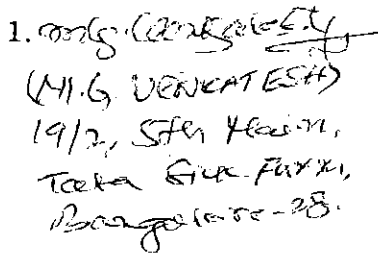 1.
(M.G VENKATESH)
19/2, 5th Main,
Tata Silk Farm,
Bangalore-28.